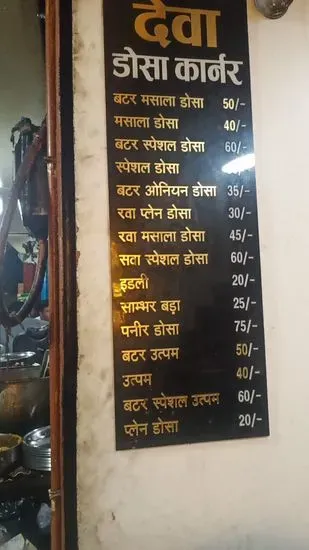 देवा
डोसा कार्नर
बटर मसाला डोसा 50/-
मसाला डोसा 40/-
बटर स्पेशल डोसा 60/-
स्पेशल डोसा
बटर ओनियन डोसा 35/-
रवा प्लेन डोसा 30/-
रवा मसाला डोसा 45/-
सवा स्पेशल डोसा 60/-
इडली 20/-
साम्भर बड़ा 25/-
पनीर डोसा 75/-
बटर उत्पम 50/-
उत्पम 40/-
बटर स्पेशल उत्पम 60/-
प्लेन डोसा 20/-